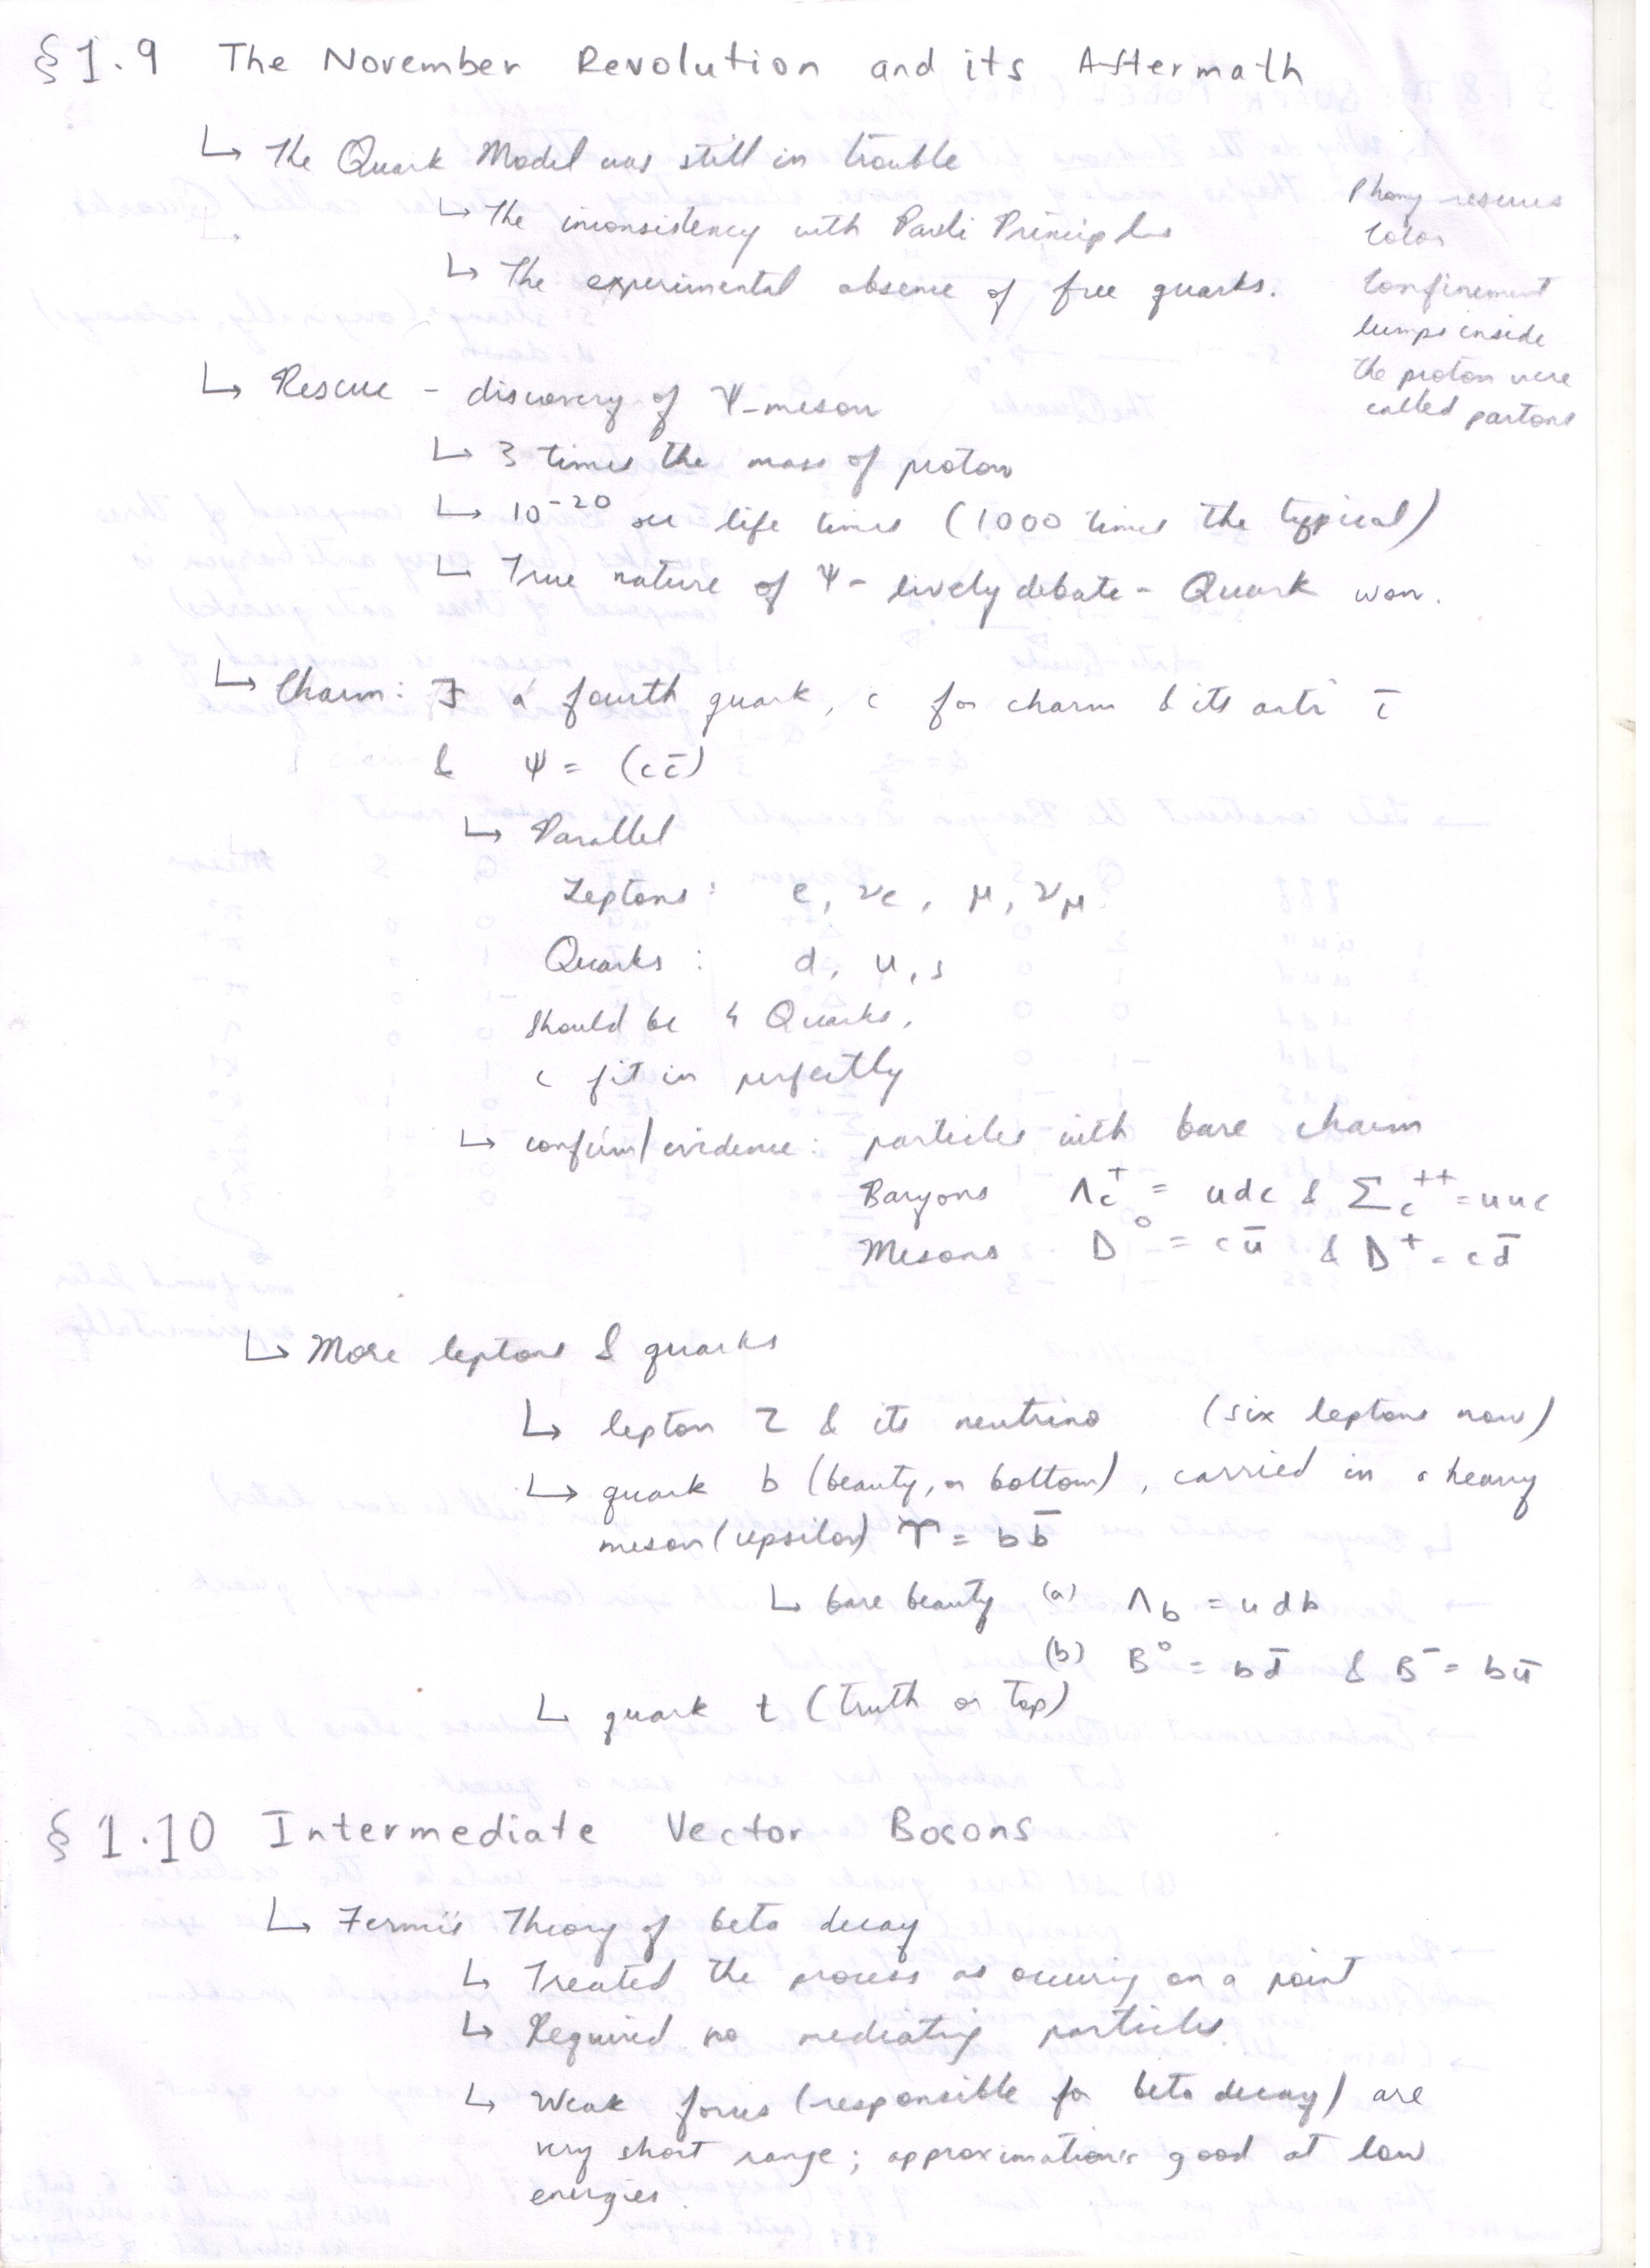 §1.9 The November Revolution and its Aftermath
↳ The Quark Model was still in trouble
↳ The inconsistency with Pauli Principles
↳ The experimental absence of free quarks.
Phony rescues
Color
Confinement
lumps inside
the proton were
called partons
↳ Rescue - discovery of Ψ-meson
↳ 3 times the mass of proton
↳ 10⁻²⁰ sec life times (1000 times the typical)
↳ True nature of Ψ - lively debate - Quark won.
↳ Charm: ∃ a fourth quark, c for charm & its anti c̄
& Ψ = (cc̄)
↳ Parallel
Leptons: e, νe, μ, νμ
Quarks: d, u, s
should be 4 Quarks,
c fit in perfectly
↳ confirm/evidence: particles with bare charm
Baryons Λc⁺ = udc & Σc⁺⁺ = uuc
Mesons D⁰ = cū & D⁺ = cd̄
↳ More leptons & quarks
↳ lepton τ & its neutrino (six leptons now)
↳ quark b (beauty, or bottom), carried in a heavy
meson (upsilon) ϒ = bb̄
↳ bare beauty (a) Λb = udb
(b) B⁰ = bd̄ & B⁻ = bū
↳ quark t (truth or top)
§1.10 Intermediate Vector Bosons
↳ Fermi's Theory of beta decay
↳ Treated the process as occuring on a point
↳ Required no mediating particles
↳ Weak forces (responsible for beta decay) are
very short range; approximation's good at low
energies.